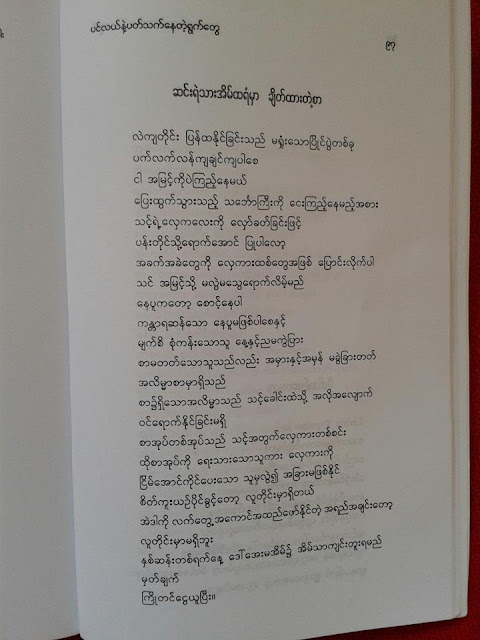 ပင်လယ်နဲ့ပတ်သက်နေတဲ့ရွက်တွေ
၉၇
ဆင်းရဲသားအိမ်ထရံမှာ ချိတ်ထားတဲ့စာ
လဲကျတိုင်း ပြန်ထနိုင်ခြင်းသည် မရှုံးသောပြိုင်ပွဲတစ်ခု
ပက်လက်လန်ကျချင်ကျပါစေ
ငါ အမြင့်ကိုပဲကြည့်နေမယ်
ပြေးထွက်သွားသည့် သင်္ဘောကြီးကို ငေးကြည့်နေမည့်အစား
သင့်ရဲ့လှေကလေးကို လှော်ခတ်ခြင်းဖြင့်
ပန်းတိုင်သို့ရောက်အောင် ပြုပါလော့
အခက်အခဲတွေကို လှေကားထစ်တွေအဖြစ် ပြောင်းလိုက်ပါ
သင် အမြင့်သို့ မလွဲမသွေရောက်လိမ့်မည်
နေပူကတော့ စောင့်နေပါ
ကန္တာရဆန်သော နေပူမဖြစ်ပါစေနှင့်
မျက်စိ စုံကန်းသောသူ နေ့နှင့်ညမကွဲပြား
စာမတတ်သောသူသည်လည်း အမှားနှင့်အမှန် မခွဲခြားတတ်
အလိမ္မာစာမှာရှိသည်
စာ၌ရှိသောအလိမ္မာသည် သင့်ခေါင်းထဲသို့ အလိုအလျောက်
ဝင်ရောက်နိုင်ခြင်းမရှိ
စာအုပ်တစ်အုပ်သည် သင့်အတွက်လှေကားတစ်စင်း
ထိုစာအုပ်ကို ရေးသားသောသူကား လှေကားကို
ငြိမ်အောင်ကိုင်ပေးသော သူမှလွဲ၍ အခြားမဖြစ်နိုင်
စိတ်ကူးယဉ်ပိုင်ခွင့်တော့ လူတိုင်းမှာရှိတယ်
အဲဒါကို လက်တွေ့အကောင်အထည်ဖော်နိုင်တဲ့ အရည်အချင်းတော့
လူတိုင်းမှာမရှိဘူး
နှစ်ဆန်းတစ်ရက်နေ့ ဒေါ်အေးမအိမ်၌ အိမ်သာကျင်းတူးရမည်
မှတ်ချက်
ကြိုတင်ငွေယူပြီး။